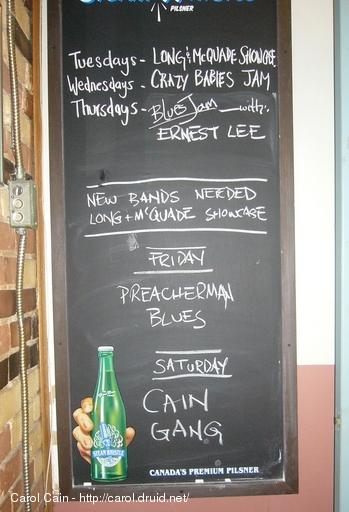 PILSNER
Tuesdays - LONG & McQUADE SHOWCASE
Wednesdays - CRAZY BABIES JAM
Thursdays - BLUES JAM with
ERNEST LEE
NEW BANDS NEEDED
LONG + McQUADE SHOWCASE
FRIDAY
PREACHERMAN
BLUES
SATURDAY
CAIN
GANG
STEAM WHISTLE
CANADA'S PREMIUM PILSNER
Carol Cain - http://carol.druid.net/